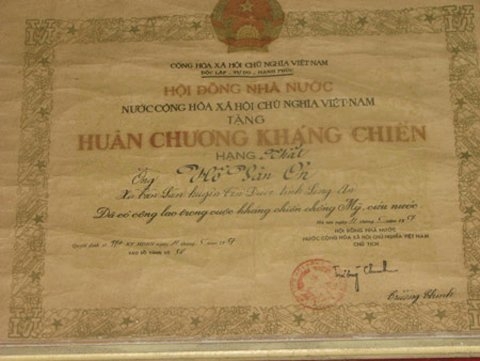 CỘNG HÒA XÃ HỘI CHỦ NGHĨA VIỆT NAM
ĐỘC LẬP - TỰ DO - HẠNH PHÚC
HỘI ĐỒNG NHÀ NƯỚC
NƯỚC CỘNG HÒA XÃ HỘI CHỦ NGHĨA VIỆT NAM
TẶNG
HUÂN CHƯƠNG KHÁNG CHIẾN
HẠNG Nhất
Ông Văn
Xã Tân huyện Tân tỉnh Long An
Đã có công lao trong cuộc kháng chiến chống Mỹ, cứu nước
Hà nội ngày tháng 5
HỘI ĐỒNG NHÀ NƯỚC
NƯỚC CỘNG HÒA XÃ HỘI CHỦ NGHĨA VIỆT NAM
CHỦ TỊCH
Quyết định số KT/HĐNN ngày
VÀO SỔ VÀNG SỐ
Trường Chinh
Trường Chinh